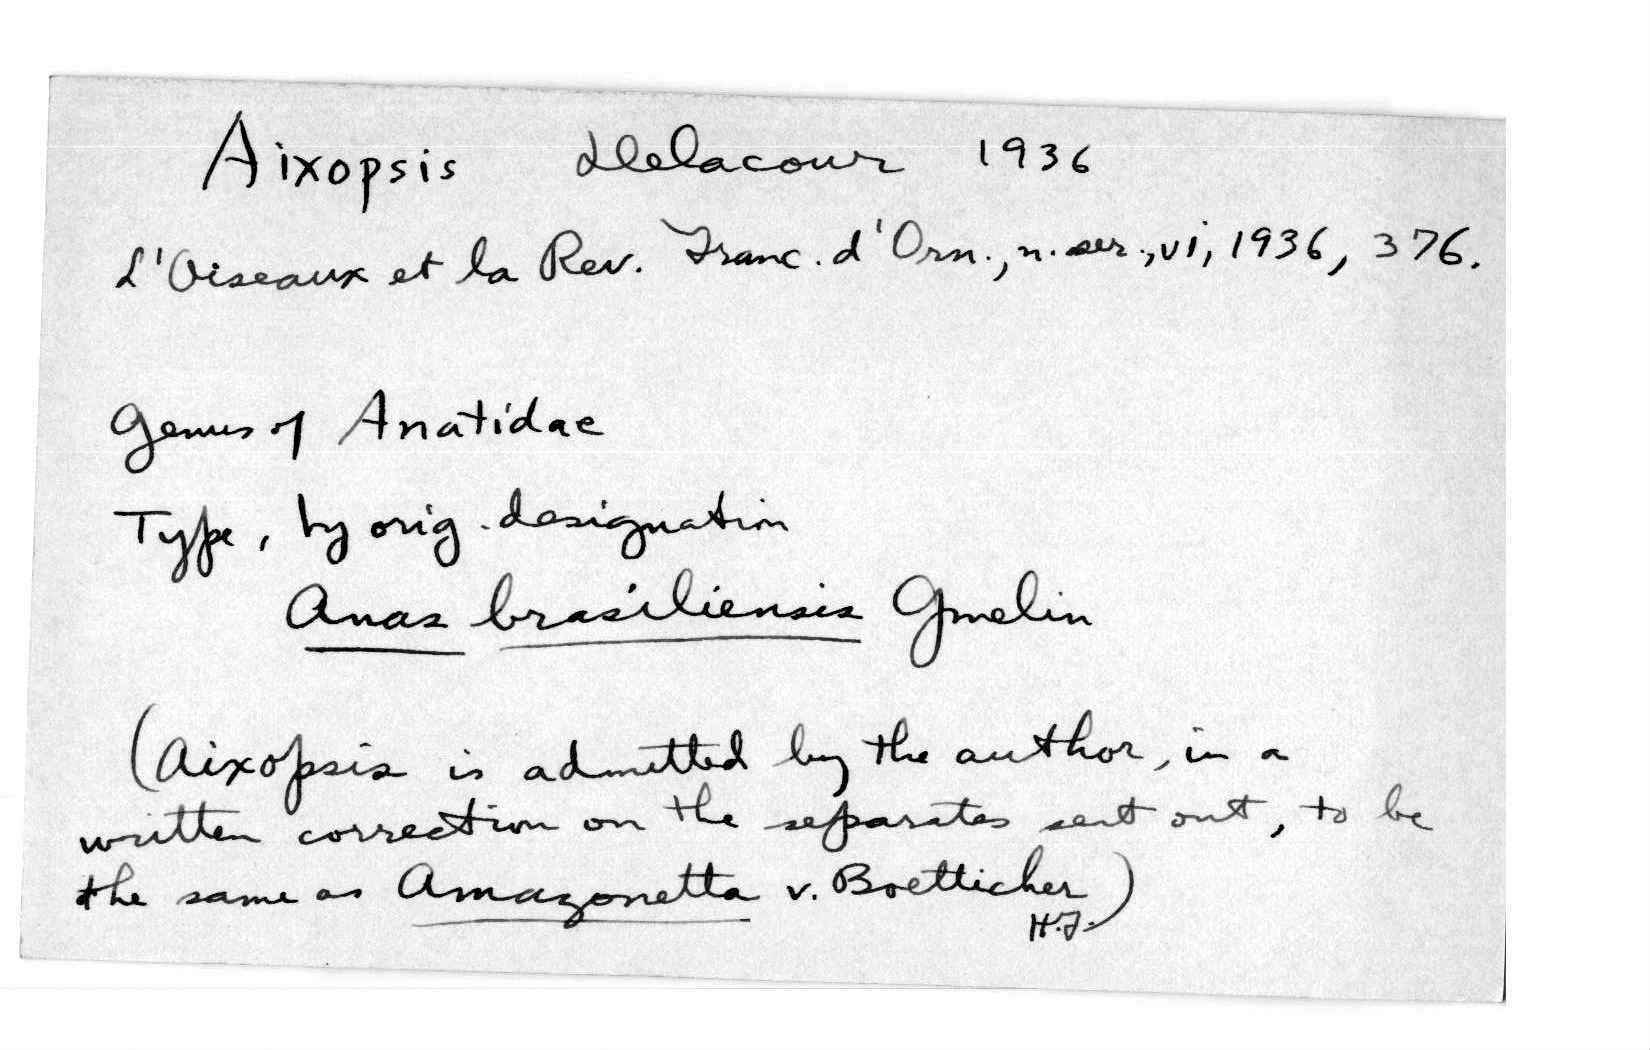 Aixopsis Delacour 1936
L'Oiseaux et la Rev. Franc. d'Orn., n. ser., vi, 1936, 376.
Genus of Anatidae
Type, by orig. designation
Anas brasiliensis Gmelin
(Aixopsis is admitted by the author, in a
written correction on the separates sent out, to be
the same as Amazonetta v. Boetticher)
H.F.